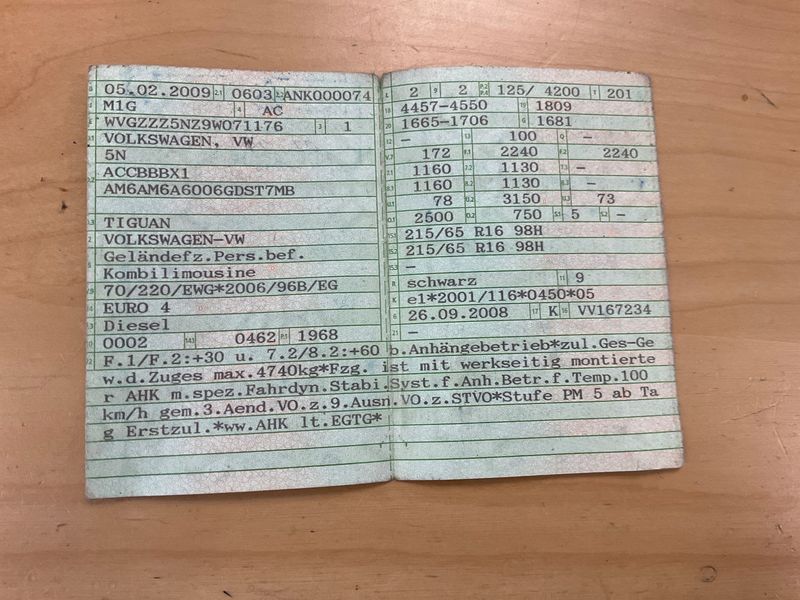 B 05.02.2009 2.1 0603 2.2 ANK000074
J M1G 4 AC
E WVGZZZ5NZ9W071176 3 1
VOLKSWAGEN, VW
5N
ACCBBBX1
AM6AM6A6006GDST7MB
TIGUAN
VOLKSWAGEN-VW
Geländefz.Pers.bef.
Kombilimousine
70/220/EWG*2006/96B/EG
EURO 4
Diesel
0002 14.1 0462 P.1 1968
2 9 2 P.2 P.4 125/ 4200 T 201
18 4457-4550 19 1809
20 1665-1706 G 1681
12 – 13 100 Q –
V.7 172 F.1 2240 F.2 2240
7.1 1160 7.2 1130 7.3 –
8.1 1160 8.2 1130 8.3 –
U.1 78 U.2 3150 U.3 73
O.1 2500 O.2 750 S.1 5 S.2 –
15.1 215/65 R16 98H
15.2 215/65 R16 98H
15.3 –
R schwarz 11 9
K e1*2001/116*0450*05
6 26.09.2008 17 K 16 VV167234
21 –
22 F.1/F.2:+30 u. 7.2/8.2:+60 b.Anhängebetrieb*zul.Ges-Ge
w.d.Zuges max.4740kg*Fzg. ist mit werkseitig montierte
r AHK m.spez.Fahrdyn.Stabi.Syst.f.Anh.Betr.f.Temp.100
km/h gem.3.Aend.VO.z.9.Ausn.VO.z.STVO*Stufe PM 5 ab Ta
g Erstzul.*ww.AHK lt.EGTG*